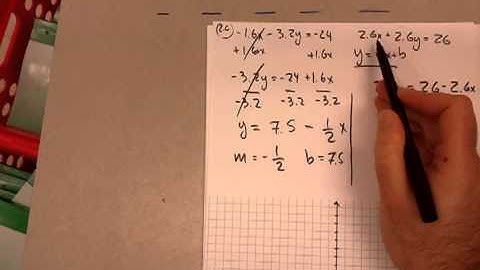 2c) -1.6x - 3.2y = -24
+1.6x +1.6x
-3.2y = -24 + 1.6x
-3.2 -3.2 -3.2
y = 7.5 - 1/2 x
m = - 1/2 b = 7.5
2.6x + 2.6y = 26
y = x + b
= 26 - 2.6x